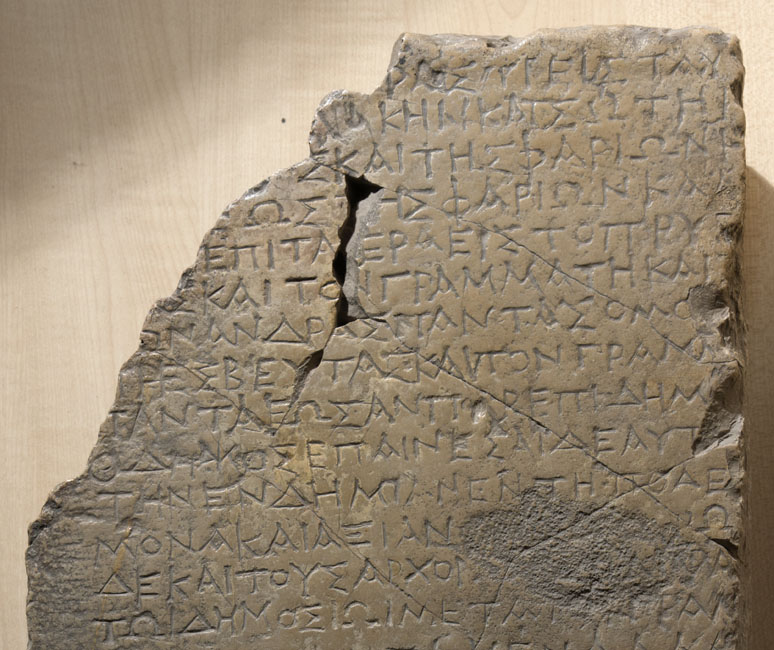 ΕΙΣΤΑΥ
ΚΗΝΚΑΙΣΩΤΗ
ΣΚΑΙΤΗΣΦΑΡΙΩΝ
ΕΩΣ ΗΣΦΑΡΙΩΝΚΑ
ΕΠΙΤΑ ΕΡΑΕΙΣΤΟΠΡΥ
ΚΑΙΤΟΝΓΡΑΜΜΑΤΗΚΑΙ
ΑΝΔΡΑΣΠΑΝΤΑΣΟΜΟ
ΡΕΣΒΕΥΤΑΣΚΑΙΤΟΝΓΡΑΜ
ΤΑΝΤΑΕΩΣΑΝΠΑΡΕΠΙΔΗΜ
ΟΔΗΜΟΣΕΠΑΙΝΕΣΑΙΔΕΑΥΤ
ΤΗΝΕΝΔΗΜΙΑΝΕΝΤΗΠΟΛΕ
ΜΟΝΑΚΑΙΑΞΙΑΝ
ΔΕΚΑΙΤΟΥΣΑΡΧΟ
ΤΩΙΔΗΜΟΣΙΩΙΜΕΤΑ